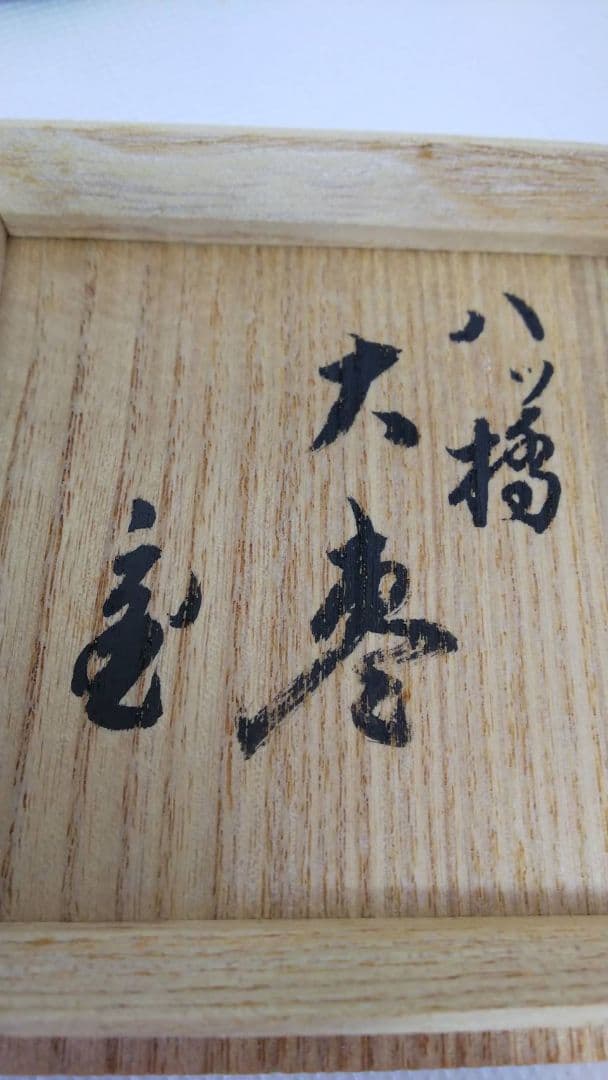 八ッ橋
大棗
室